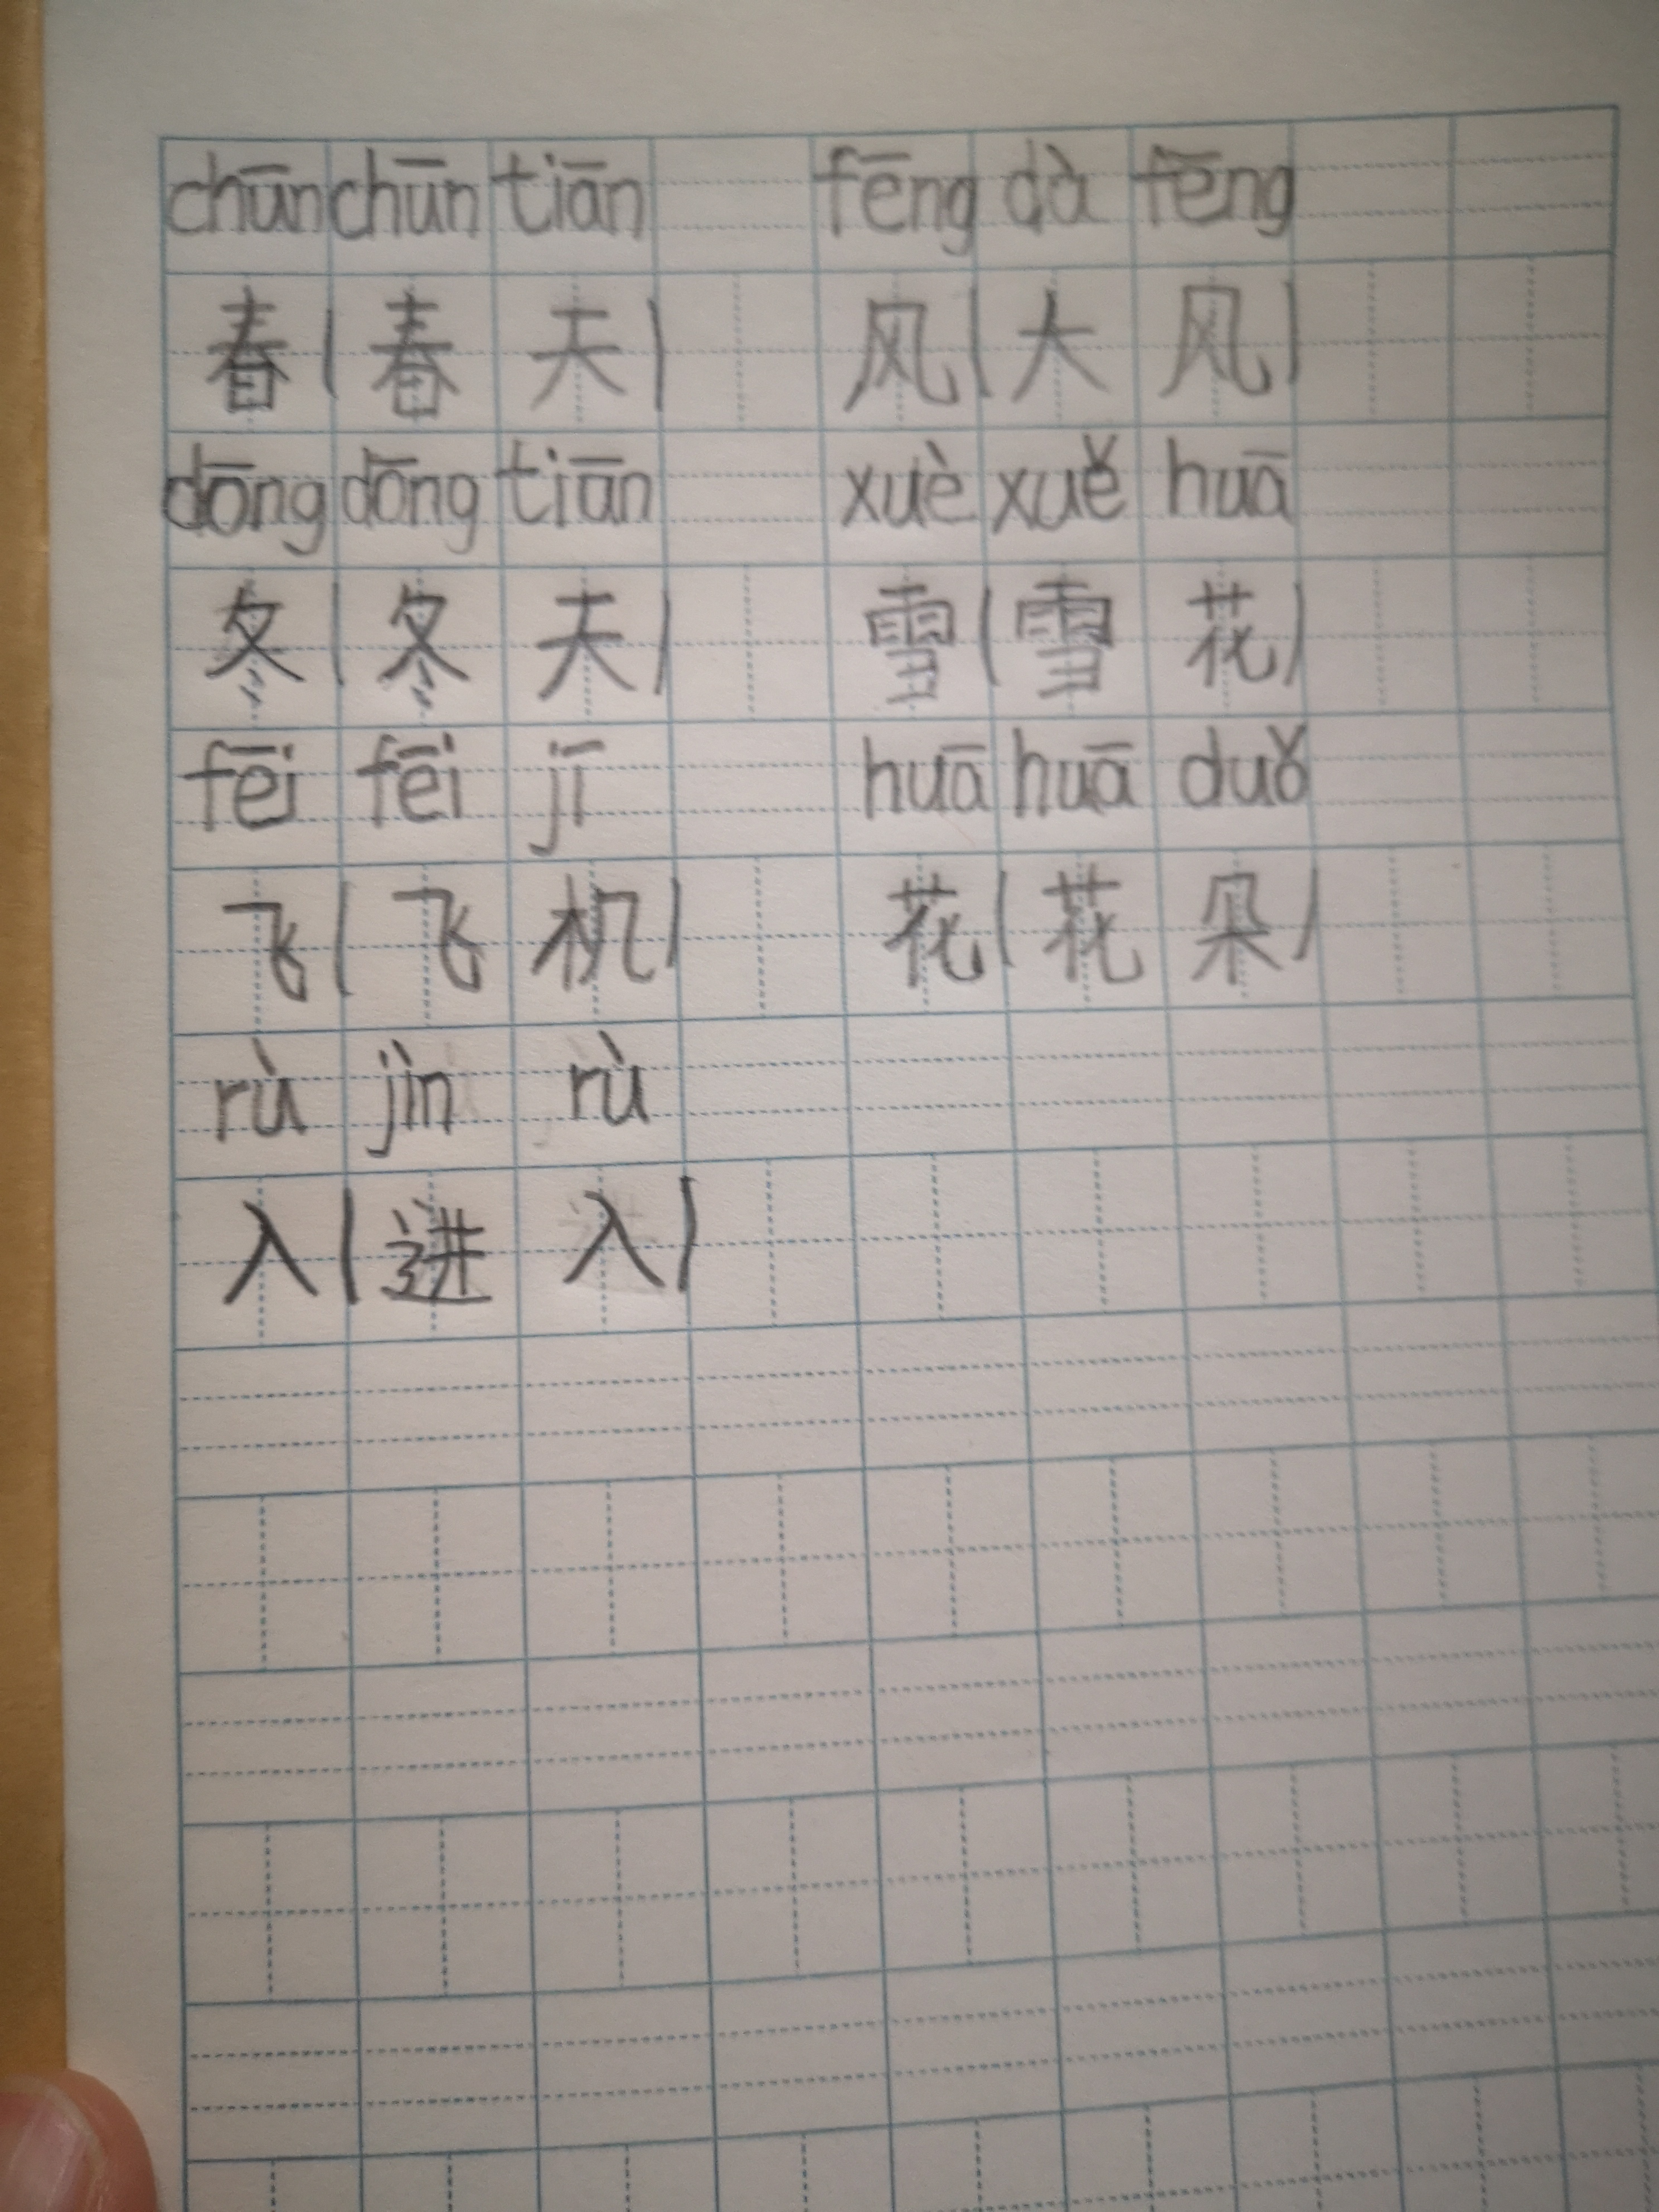 chūn chūn tiān fēng dà fēng
春(春天) 风(大风)
dōng dōng tiān xuè xuě huā
冬(冬天) 雪(雪花)
fēi fēi jī huā huā duǒ
飞(飞机) 花(花朵)
rù jìn rù
入(进入)